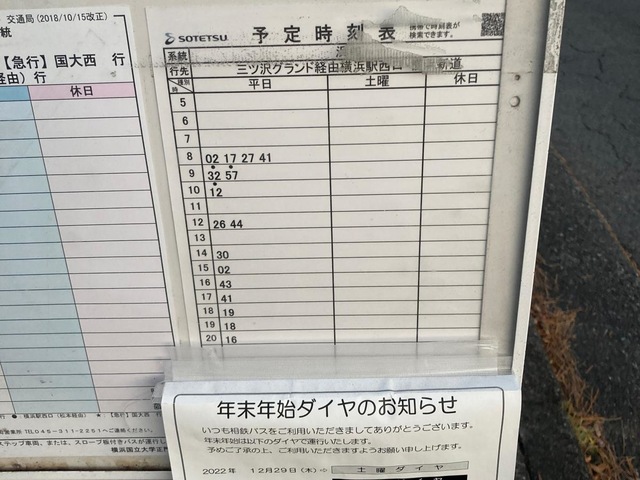 交通局(2018/10/15改正)
統
【急行】国大西 行
経由）行
休日
SOTETSU 予定時刻表
携帯で時刻表が
検索できます。
系統
行先 三ツ沢グランド経由横浜駅西口 新道
種別 平日 土曜 休日
時
5
6
7
8 02 17 27 41
9 32 57
10 12
11
12 26 44
13
14 30
15 02
16 43
17 41
18 19
19 18
20 16
行 ● 横浜駅西口(松本経由) ★：【急行】国大西 行
営業所 TEL045-311-2251へご連絡ください。
ステップ車両、または、スロープ板付きバスが運行し
横浜国立大学正門
年末年始ダイヤのお知らせ
いつも相鉄バスをご利用いただきましてありがとうございます。
年末年始は以下のダイヤで運行いたします。
予めご了承の上、ご利用いただきますようお願い申し上げます。
2022年 12月29日(木)⇨ 土曜ダイヤ